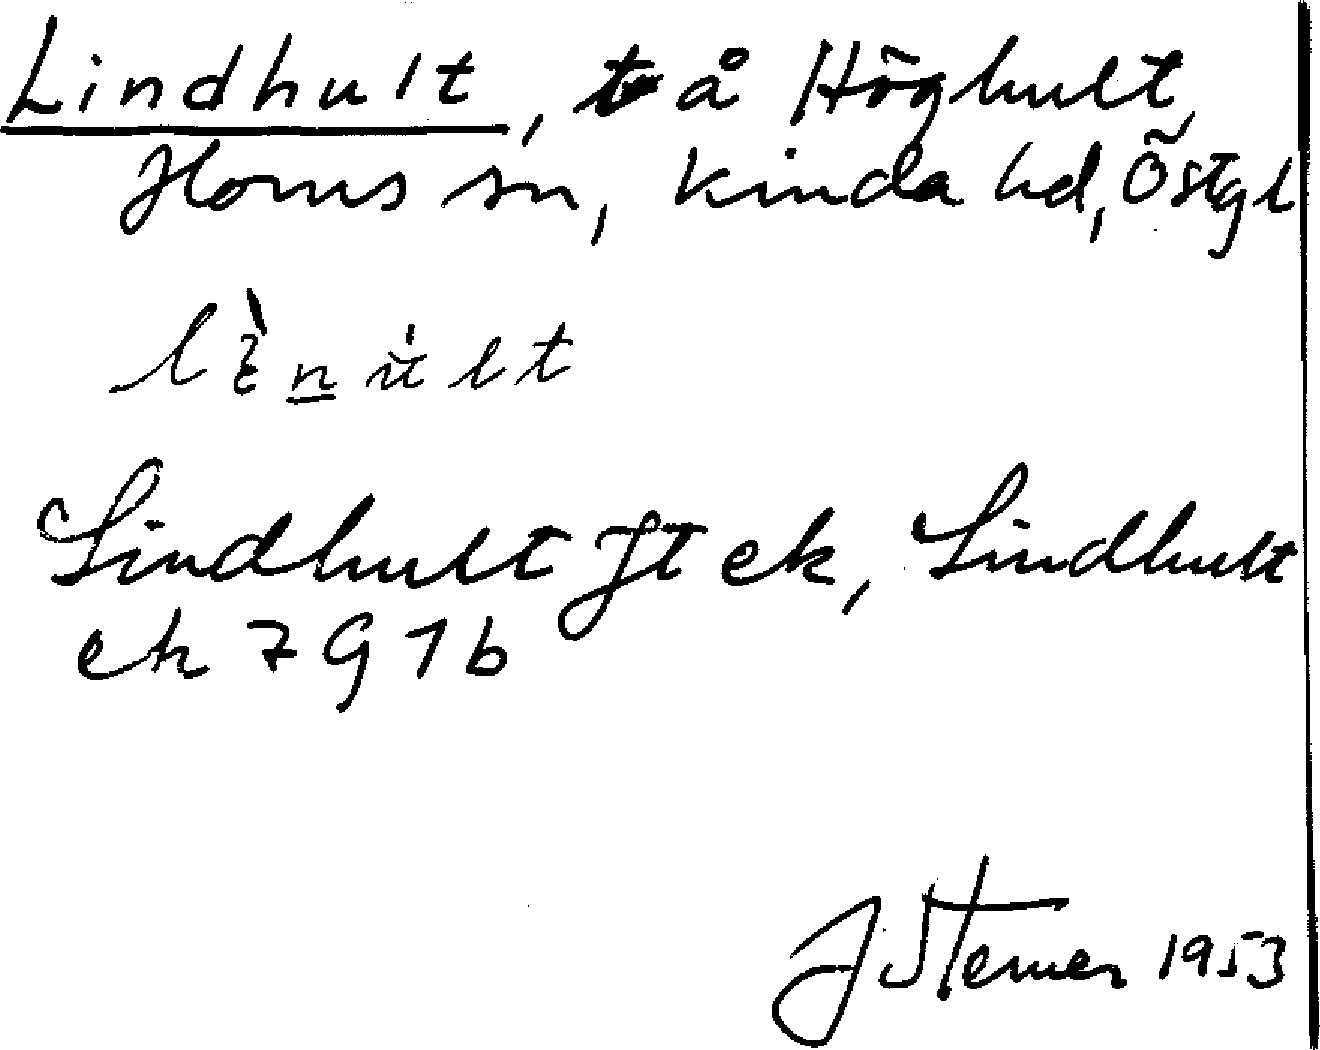 Lindhult, t å Höghult,
Horns sn, Kinda hd, Östgl
Lindhult Jt ek, Lindhult
ek 7G 1b
J Sterner 1953